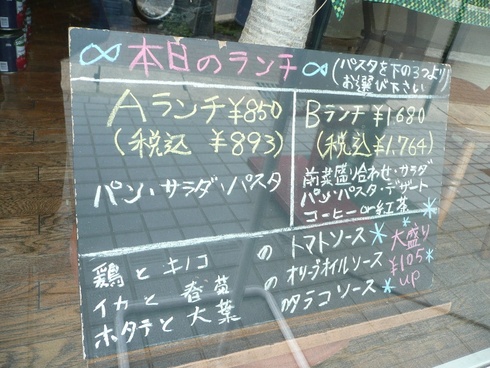 ∞本日のランチ∞
(パスタを下の3つより
お選び下さい
Aランチ¥850
(税込 ¥893)
パン・サラダ・パスタ
Bランチ¥1,680
(税込¥1,764)
前菜盛り合わせ・サラダ
パン・パスタ・デザート
コーヒーor紅茶
鶏とキノコのトマトソース
イカと春菊のオリーブオイルソース
ホタテと大葉のタラコソース
大盛り
¥105
up